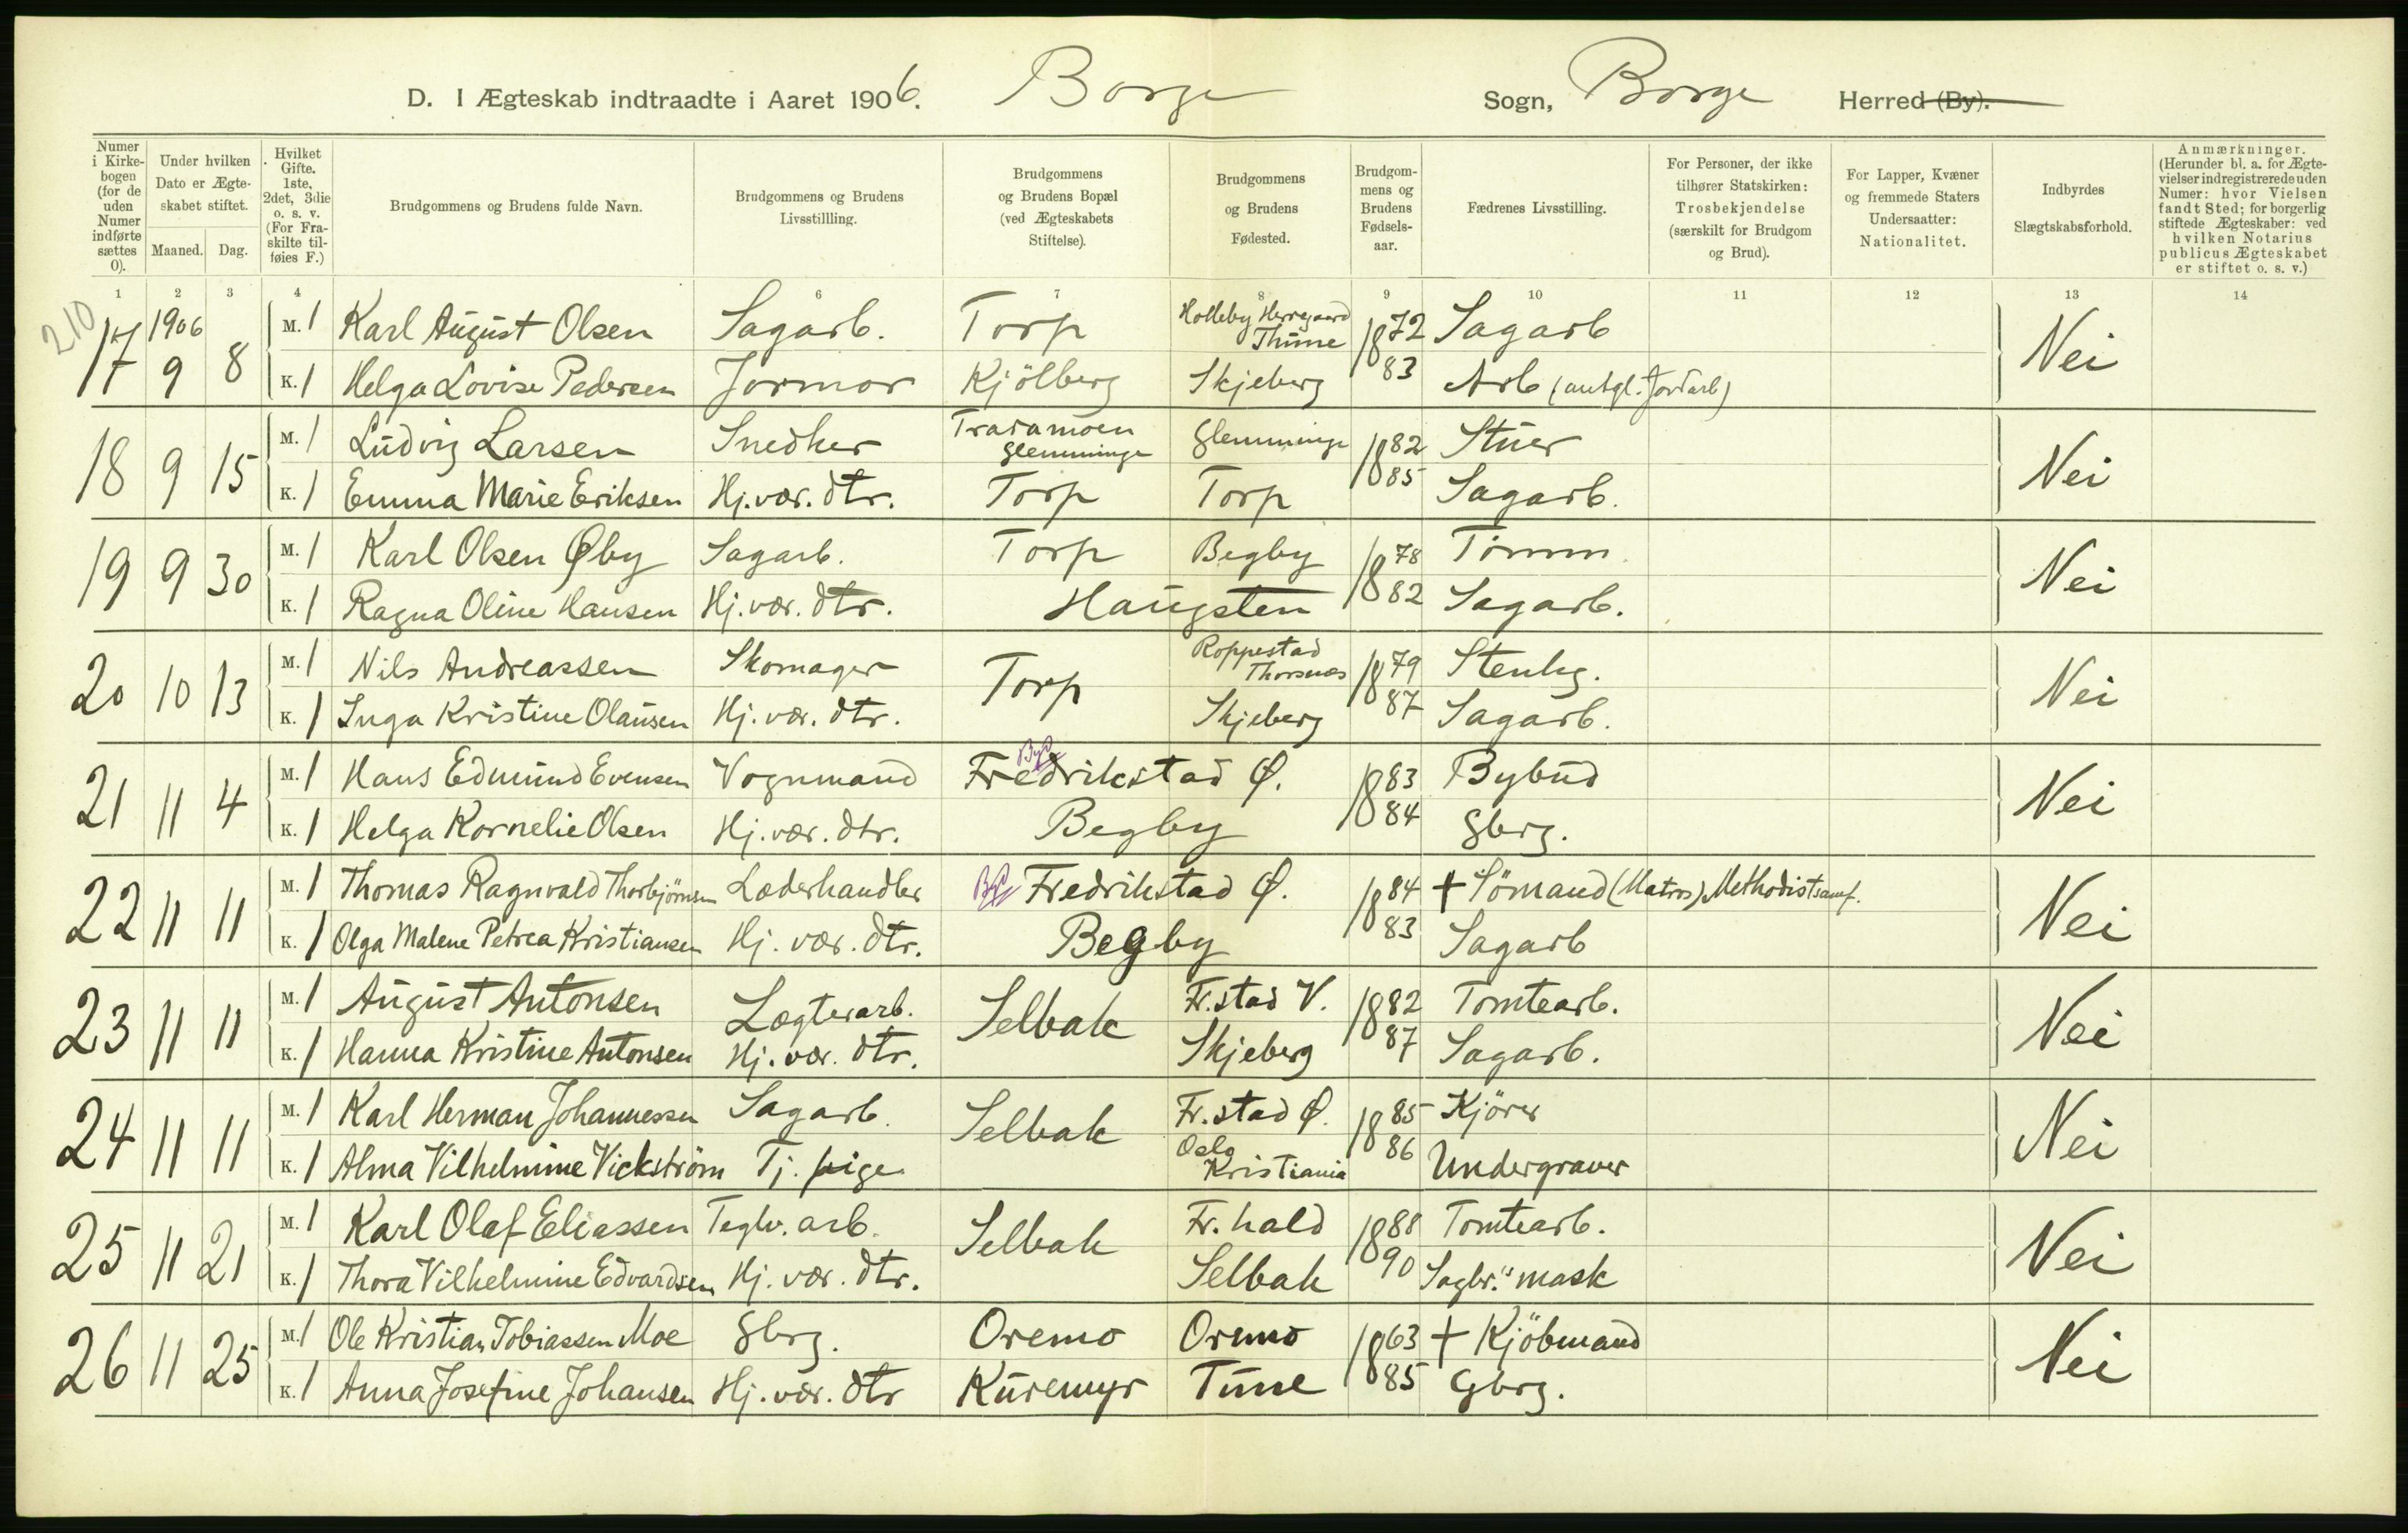 D. I Ægteskab indtraadte i Aaret 1906. Borge Sogn, Borge Herred (By).
Numer i Kirkebogen (for de uden Numer indførte sættes 0).
Under hvilken Dato er Ægteskabet stiftet.
Maaned. Dag.
Hvilket Gifte. 1ste, 2det, 3die o. s. v. (For Fraskilte tilføies F.)
Brudgommens og Brudens fulde Navn.
Brudgommens og Brudens Livsstillling.
Brudgommens og Brudens Bopæl (ved Ægteskabets Stiftelse).
Brudgommens og Brudens Fødested.
Brudgommens og Brudens Fødselsaar.
Fædrenes Livsstilling.
For Personer, der ikke tilhører Statskirken: Trosbekjendelse (særskilt for Brudgom og Brud).
For Lapper, Kvæner og fremmede Staters Undersaatter: Nationalitet.
Indbyrdes Slægtskabsforhold.
Anmærkninger. (Herunder bl. a. for Ægtevielser indregistrerede uden Numer: hvor Vielsen fandt Sted; for borgerlig stiftede Ægteskaber: ved hvilken Notarius publicus Ægteskabet er stiftet o. s. v.)
1 2 3 4 6 7 8 9 10 11 12 13 14
210
17 1906 9 8 M. 1 Karl August Olsen Sagarb. Torp Holleby Herregaard Thune 1872 Sagarb Nei
K. 1 Helga Lovise Pedersen Jormor Kjölberg Skjeberg 83 Arb (antgl. Jordarb)
18 9 15 M. 1 Ludvig Larsen Snedker Traramoen Glemminge Glemminge 1882 Stuer Nei
K. 1 Emma Marie Eriksen Hj. vær. dtr. Torp Torp 85 Sagarb.
19 9 30 M. 1 Karl Olsen Øby Sagarb. Torp Begby 1878 Tömm. Nei
K. 1 Ragna Oline Hansen Hj. vær. dtr. Haugsten 82 Sagarb.
20 10 13 M. 1 Nils Andreassen Skomager Torp Roppestad Thorsnæs 1879 Stenhg. Nei
K. 1 Inga Kristine Olaüsen Hj. vær. dtr. Skjeberg 87 Sagarb.
21 11 4 M. 1 Hans Edmund Evensen Vognmand Fredrikstad Ø. 1883 Bybud Nei
K. 1 Helga Kornelie Olsen Hj. vær. dtr. Begby 84 Gbrg.
22 11 11 M. 1 Thomas Ragnvald Thorbjörnsen Læderhandler Fredrikstad Ø. 1884 + Sömand (Matros) Methodistsamf. Nei
K. 1 Olga Malene Petrea Kristiansen Hj. vær. dtr. Begby 83 Sagarb
23 11 11 M. 1 August Antonsen Lægterarb. Selbak Fr.stad V. 1882 Tomtearb. Nei
K. 1 Hanna Kristine Antonsen Hj. vær. dtr. Skjeberg 87 Sagarb.
24 11 11 M. 1 Karl Herman Johannessen Sagarb. Selbak Fr.stad Ø. 1885 Kjörer Nei
K. 1 Alma Vilhelmine Vickström Tj. pige Oslo Kristiania 86 Undergraver
25 11 21 M. 1 Karl Olaf Eliassen Teglv. arb. Selbak Fr. hald 1888 Tomtearb. Nei
K. 1 Thora Vilhelmine Edvardsen Hj. vær. dtr. Selbak 90 Sagbr. mask
26 11 25 M. 1 Ole Kristian Tobiassen Moe Gbrg. Oremo Oremo 1863 + Kjöbmand Nei
K. 1 Anna Josefine Johansen Hj. vær. dtr Kuremyr Tune 85 Gbrg.